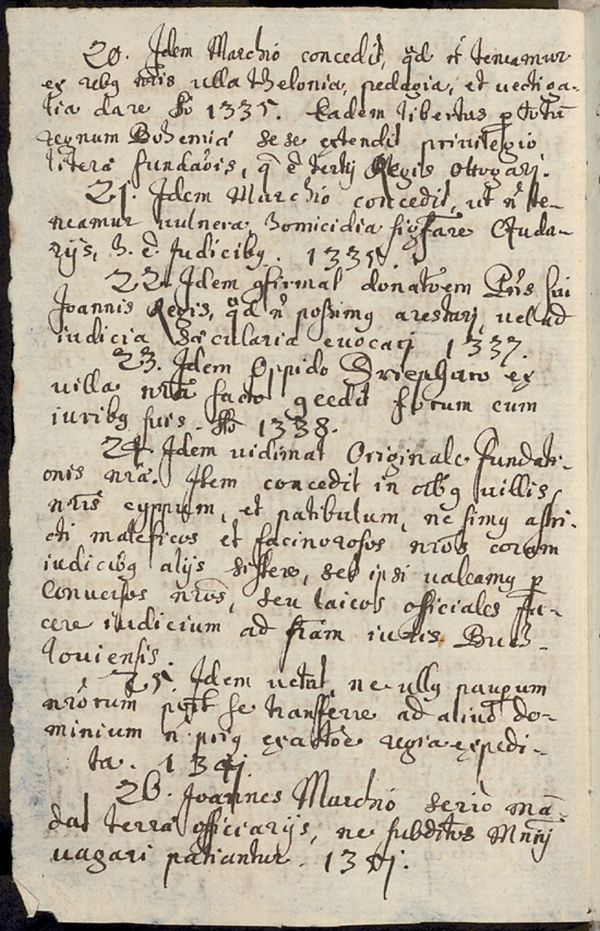 20. Idem Marchio concedit, qd n̄ teneamur
ex rebq nrīs ulla thelonia, pedagia, et uectiga-
lia dare Ao 1335. Eadem libertas p totū
regnum Bohemiæ se se extendit priuilegio
literæ fundaōis, q̄ ē tertij Regis Ottogari.
21. Idem Marchio concedit, ut n̄ te-
neamur uulnera, homicidia sigfare Czuda-
rijs, h. ē Iudicibq. 1335.
22. Idem gfirmat donatōem Prīs sui
Joannis Regis, qd n̄ possimq arestari, uel ad
iudicia Sæcularia euocari 1337.
23. Idem Oppido ex
uilla nrā facto gcedit forum cum
iuribq suis. Ao 1338.
24. Idem uidimat Originale Fundati-
onis nræ. Item concedit in oībq uillis
nrīs cyppum, et patibulum, ne simq astri-
cti maleficos et facinorosos nrōs coram
iudicibq alijs sistere, sed ipsi ualeamq p
Conuersos nrōs, seu laicos officiales fa-
cere iudicium ad frām iuris Bud-
louiensis.
25. Idem uetat, ne ullq paupum
nrōrum psit se transferre ad aliud do-
minium n̄ priq exactōe regia expedi-
ta. 1341.
26. Joannes Marchio serio mā-
dat terræ officiarijs, ne subditos Mrīj
uagari patiantur.